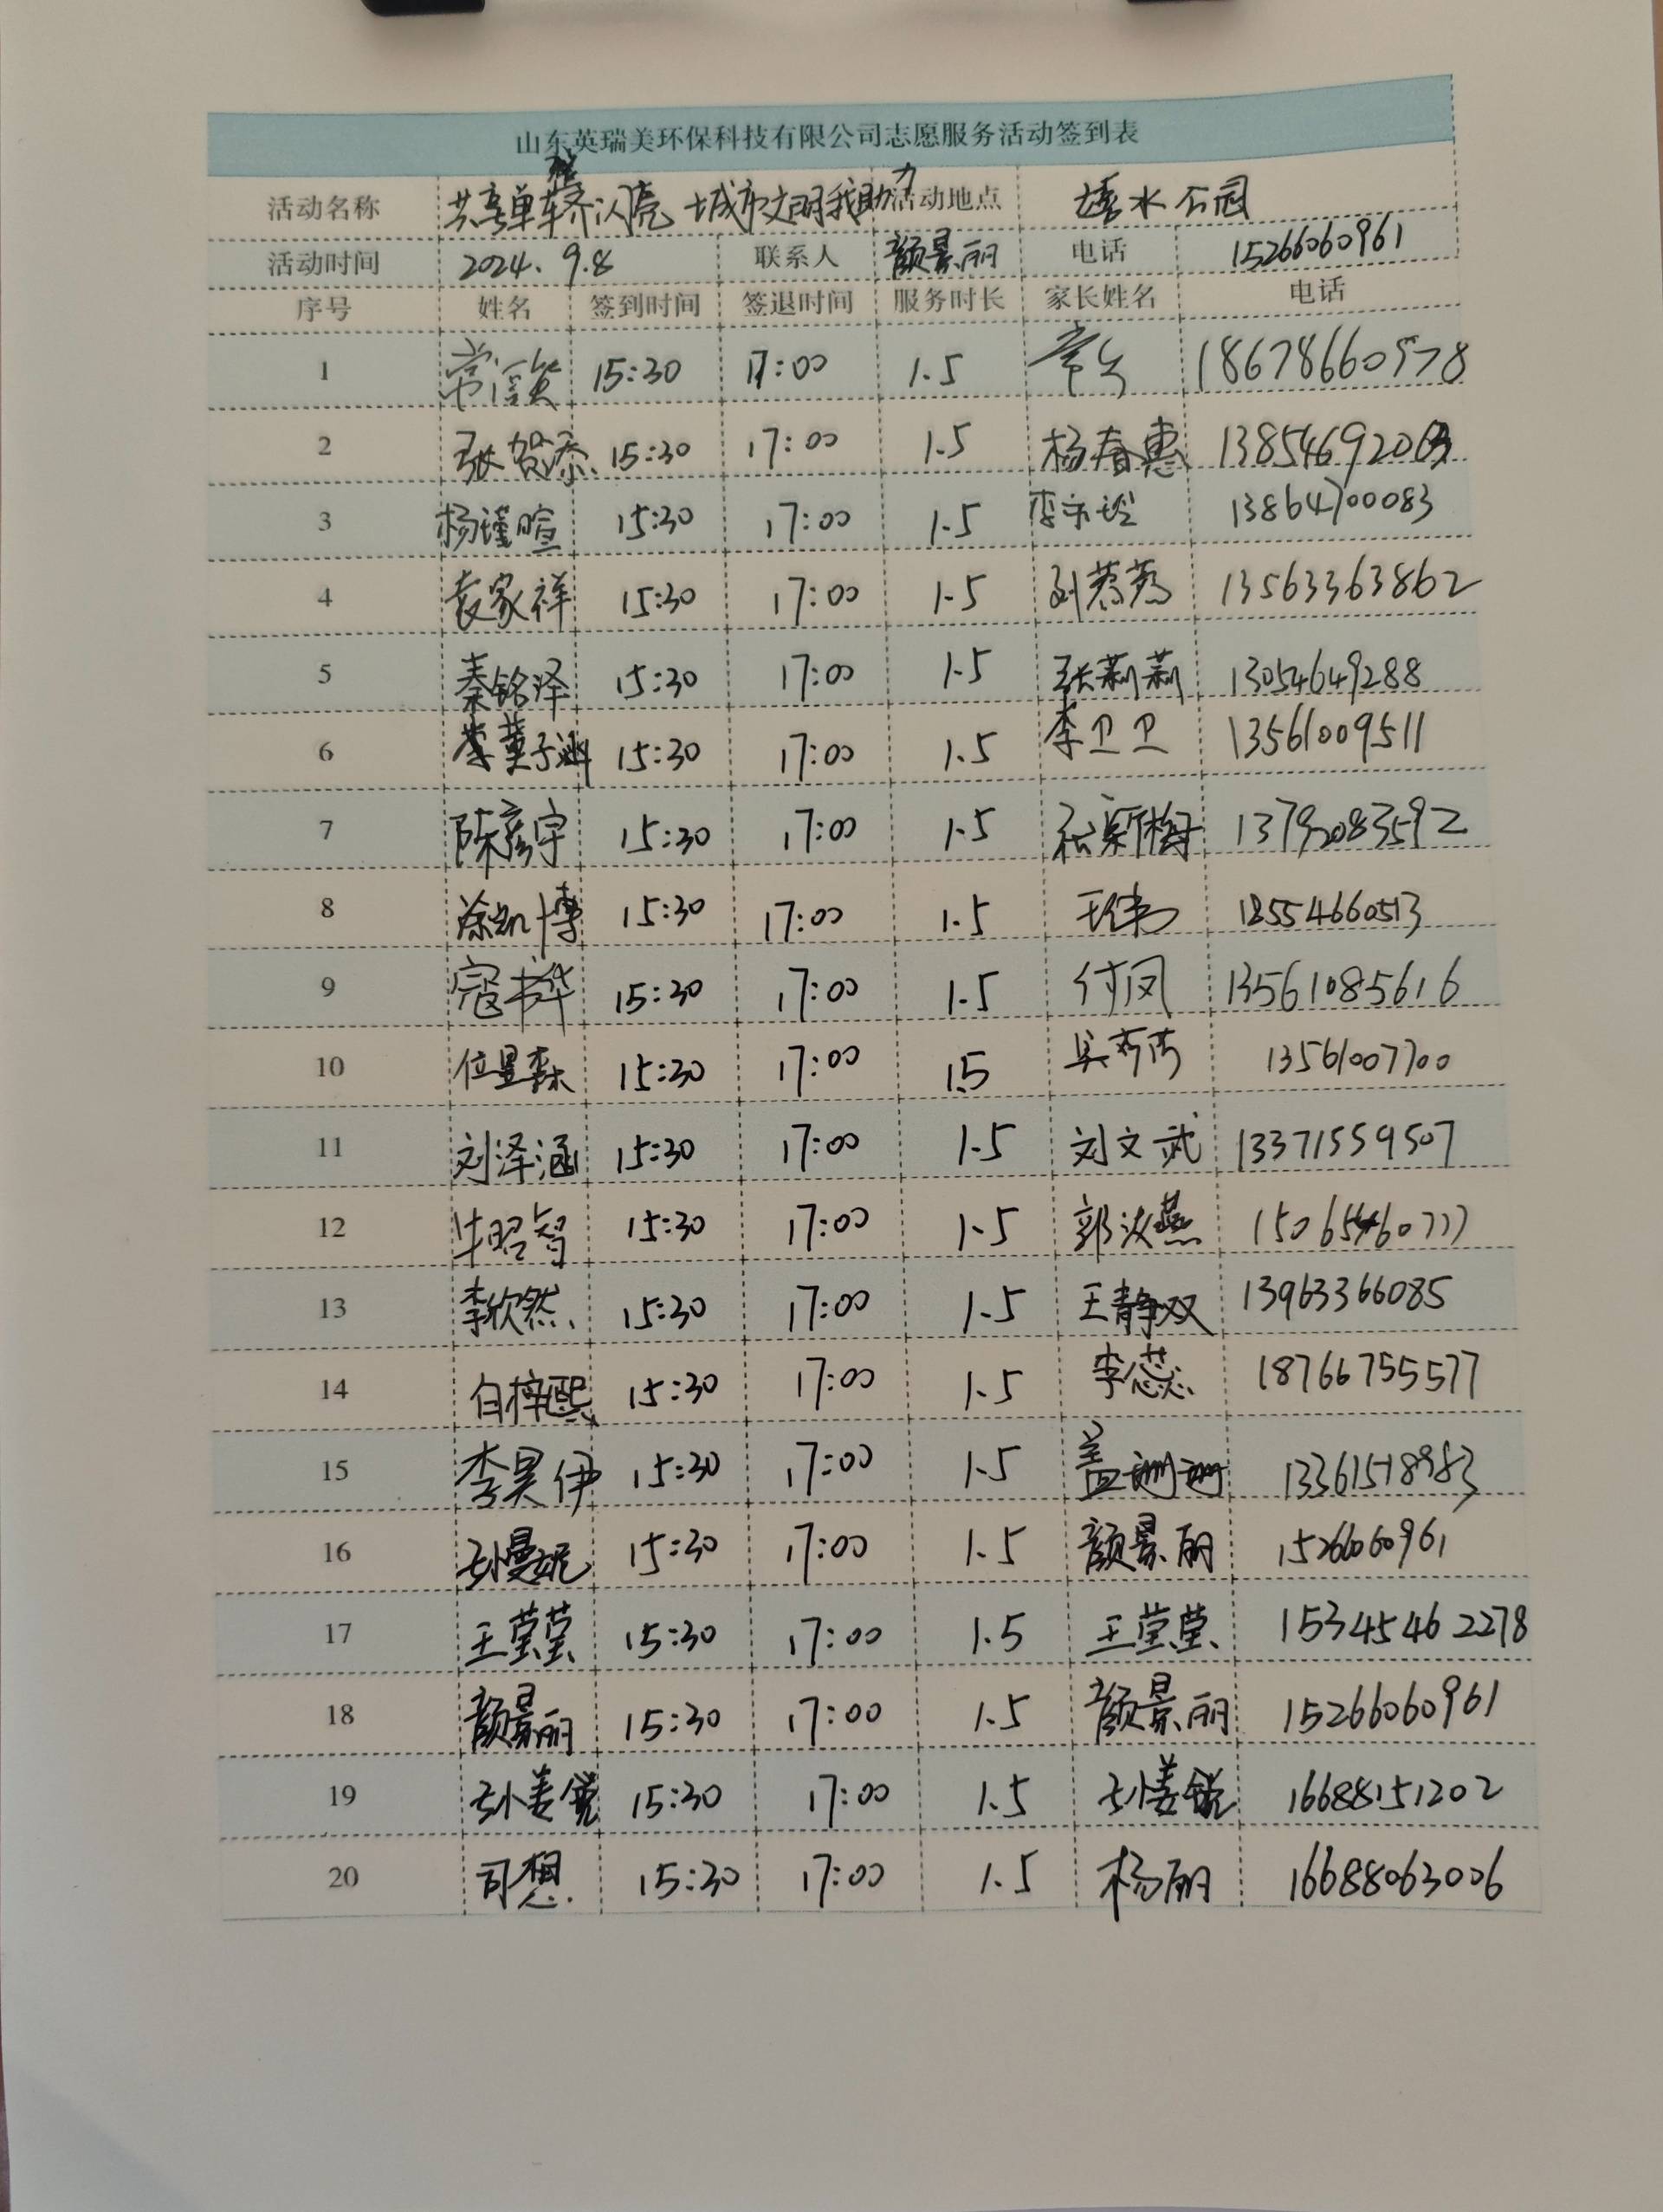 山东英瑞美环保科技有限公司志愿服务活动签到表
活动名称 共享单车擦闪亮 城市文明我助力 活动地点 水公园
活动时间 2024.9.8 联系人 颜景丽 电话 15266060961
序号 姓名 签到时间 签退时间 服务时长 家长姓名 电话
1 常 15:30 17:00 1.5 常 18678660978
2 张贺添 15:30 17:00 1.5 杨春惠
3 杨瑾暄 15:30 17:00 1.5 李 13864700083
4 袁家祥 15:30 17:00 1.5 刘燕燕 13563363862
5 秦铭泽 15:30 17:00 1.5 张莉莉 13054649288
6 董子涵 15:30 17:00 1.5 李卫卫 13561009511
7 陈彦宇 15:30 17:00 1.5 张新梅 13792083592
8 徐凯博 15:30 17:00 1.5 王伟
9 寇书华 15:30 17:00 1.5 付凤 13561085616
10 位星森 15:30 17:00 1.5 吴 13561007700
11 刘泽涵 15:30 17:00 1.5 刘文武 13371559507
12 牛昭智 15:30 17:00 1.5 郭汝燕 15065460777
13 李欣然 15:30 17:00 1.5 王静双 13963366085
14 白梓熙 15:30 17:00 1.5 李蕊 18766755577
15 李昊伊 15:30 17:00 1.5 盖珊珊 13361518983
16 孙曼妮 15:30 17:00 1.5 颜景丽 15266060961
17 王莹莹 15:30 17:00 1.5 王莹莹 15345462278
18 颜景丽 15:30 17:00 1.5 颜景丽 15266060961
19 孙姜锐 15:30 17:00 1.5 孙姜锐 16688151202
20 司想 15:30 17:00 1.5 杨丽 16688063006